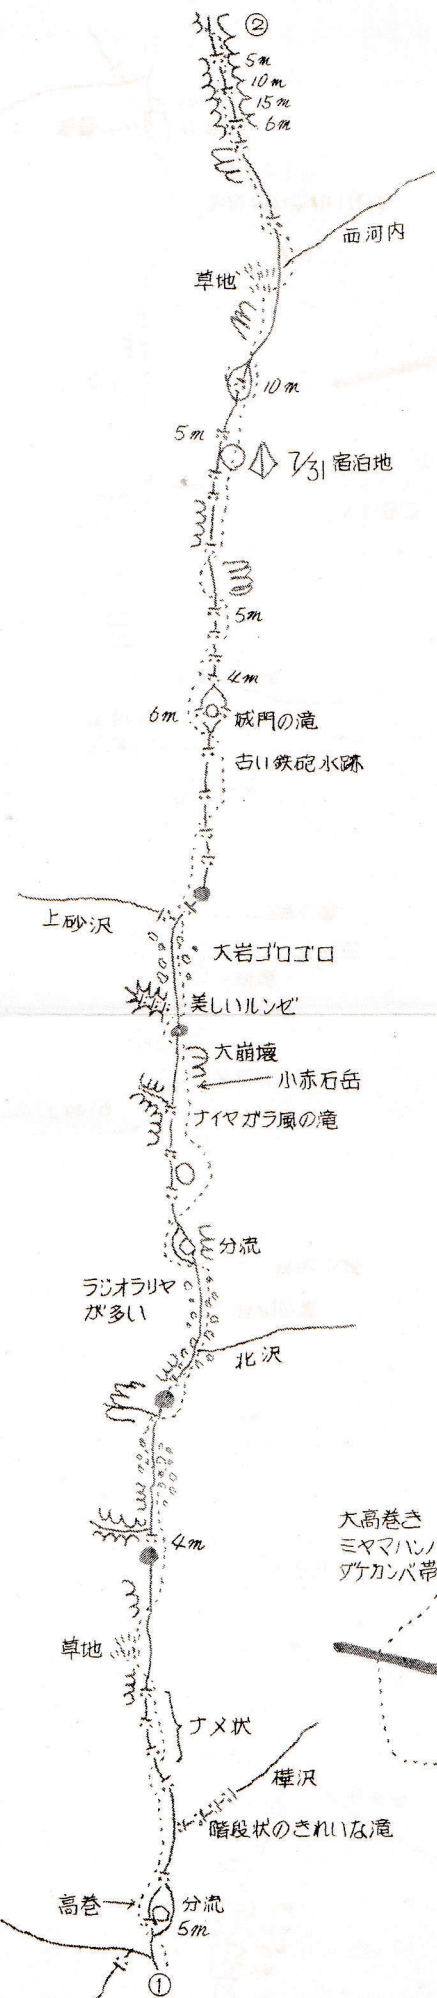 ②
5m
10m
15m
6m
西河内
草地
10m
5m
7/31 宿泊地
5m
4m
6m
城門の滝
古い鉄砲水跡
上砂沢
大岩ゴロゴロ
美しいルンゼ
大崩壊
小赤石岳
ナイヤガラ風の滝
分流
ラジオラリヤ
が多い
北沢
4m
大高巻き
ミヤマハンノ
ダケカンバ帯
草地
ナメ状
樺沢
階段状のきれいな滝
高巻
分流
5m
①